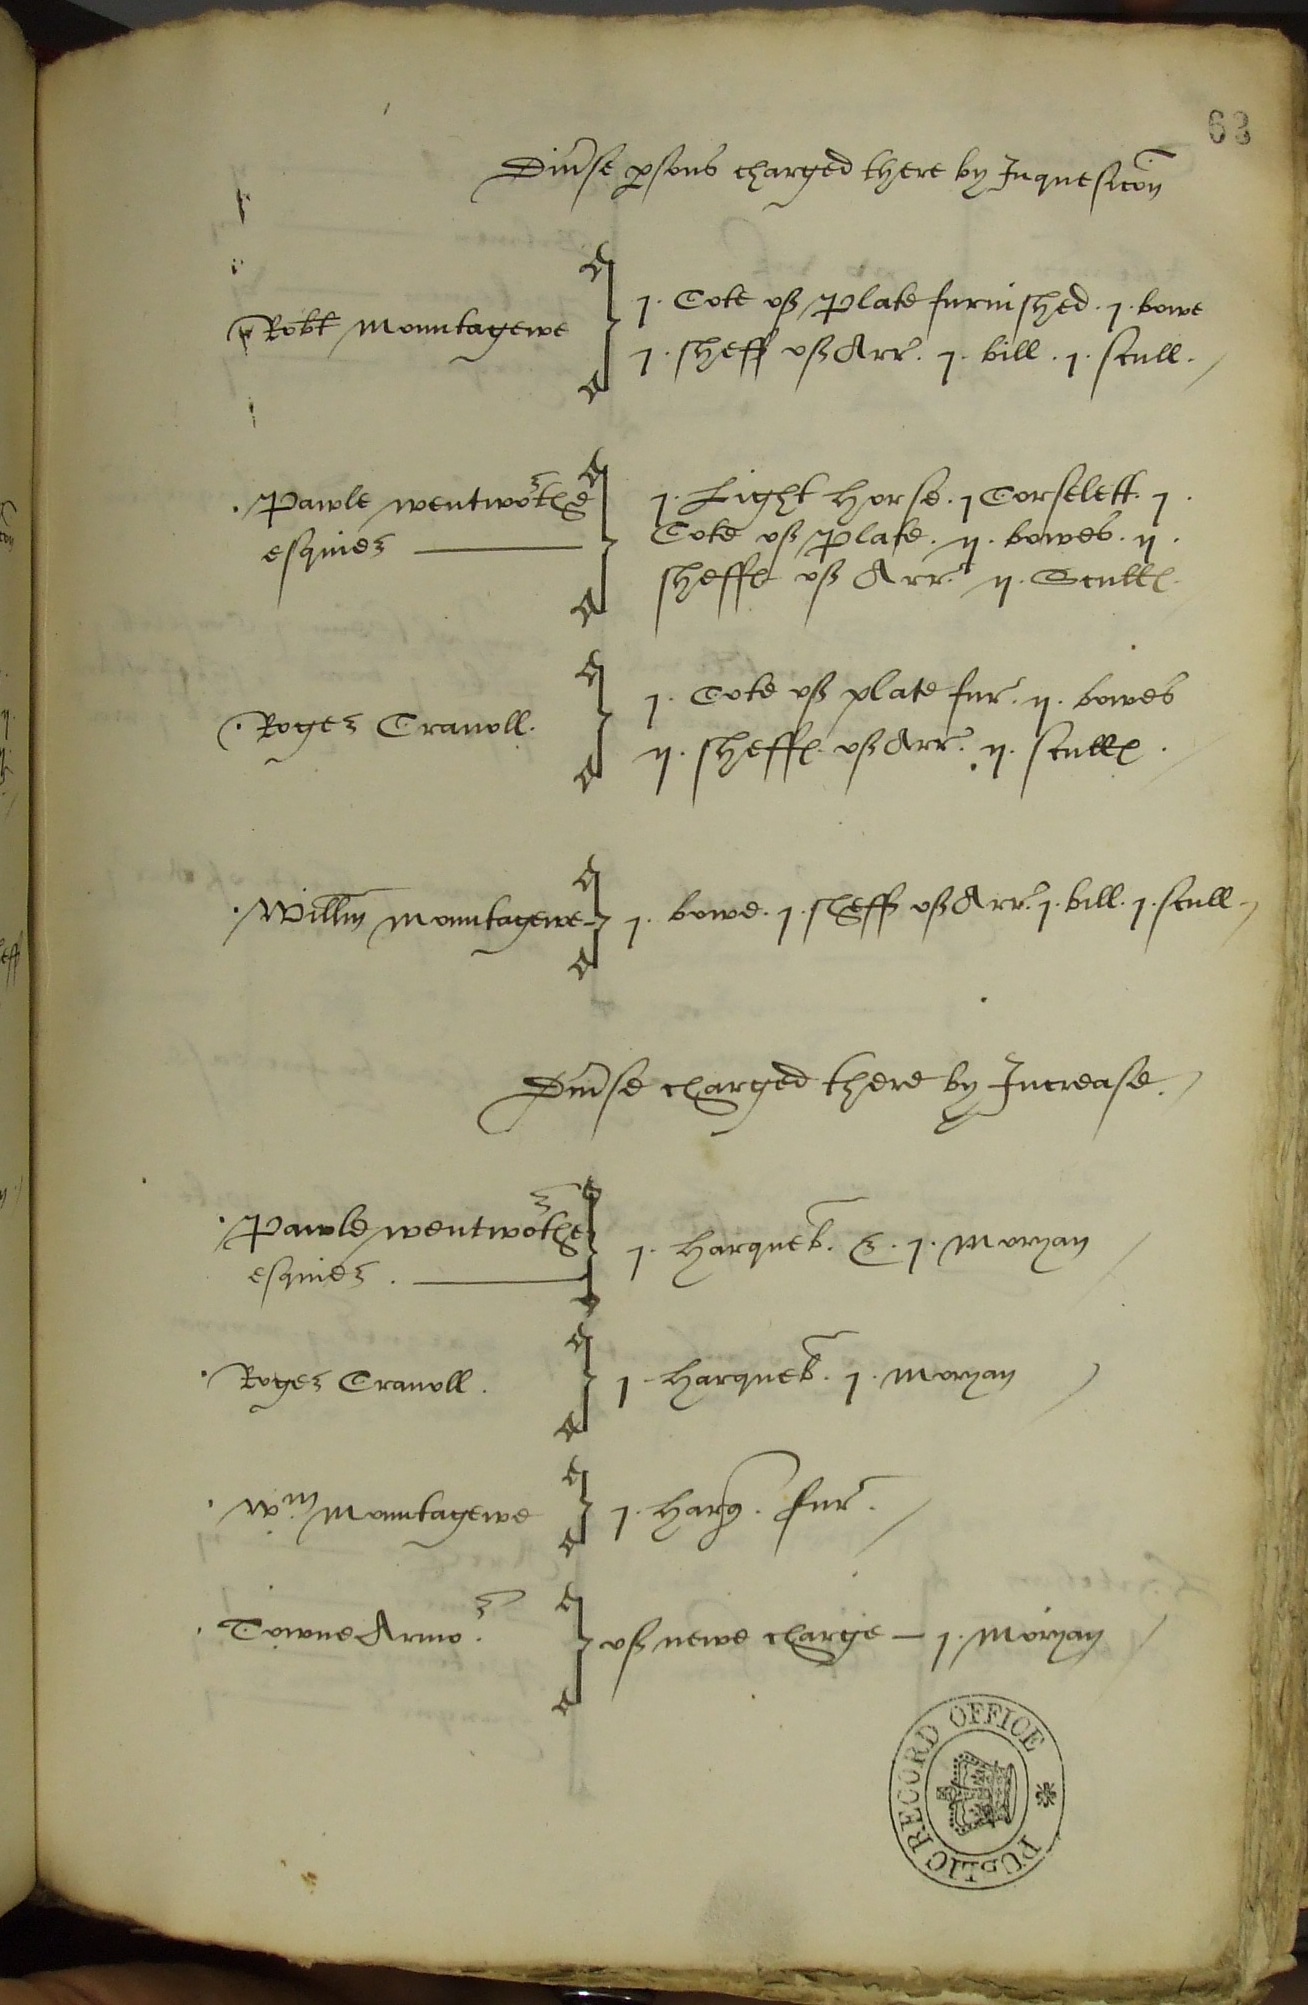 63
Div'se p'sons charged there by Inquesicon
Robt Monntagewe
1. Cote of Plate furnished. 1. bowe
1. sheff of Arr. 1. bill. 1. scull.
Pawle wentworthe
esquier
1. Light horse. 1 Corselett. 1.
Cote of Plate. ij. bowes. ij.
sheffes of Arr. ij. Sculles.
Roger Cranoll.
1. Cote of plate fur. ij. bowes
ij. sheffes. of Arr. ij. sculles.
Willm Monntagewe
1. bowe. 1. sheff of Arr. 1. bill. 1. scull.
Div'se charged there by Increase.
Pawle wentworthe
esquier.
1. harqueb. &. 1. Moryan
Roger Cranoll.
1. harqueb. 1. Moryan
Wm Monntagewe
1. harq. fur.
Towne Armor.
of newe charge – 1. Moryan
PUBLIC RECORD OFFICE